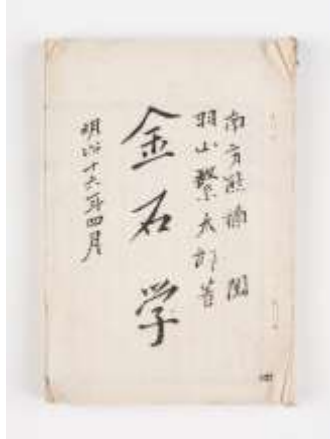 南方熊楠 閲
羽山繁太郎著
金石学
明治十六年四月